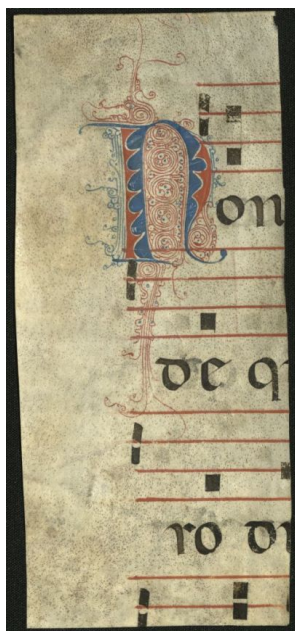 Non
de q
ro di